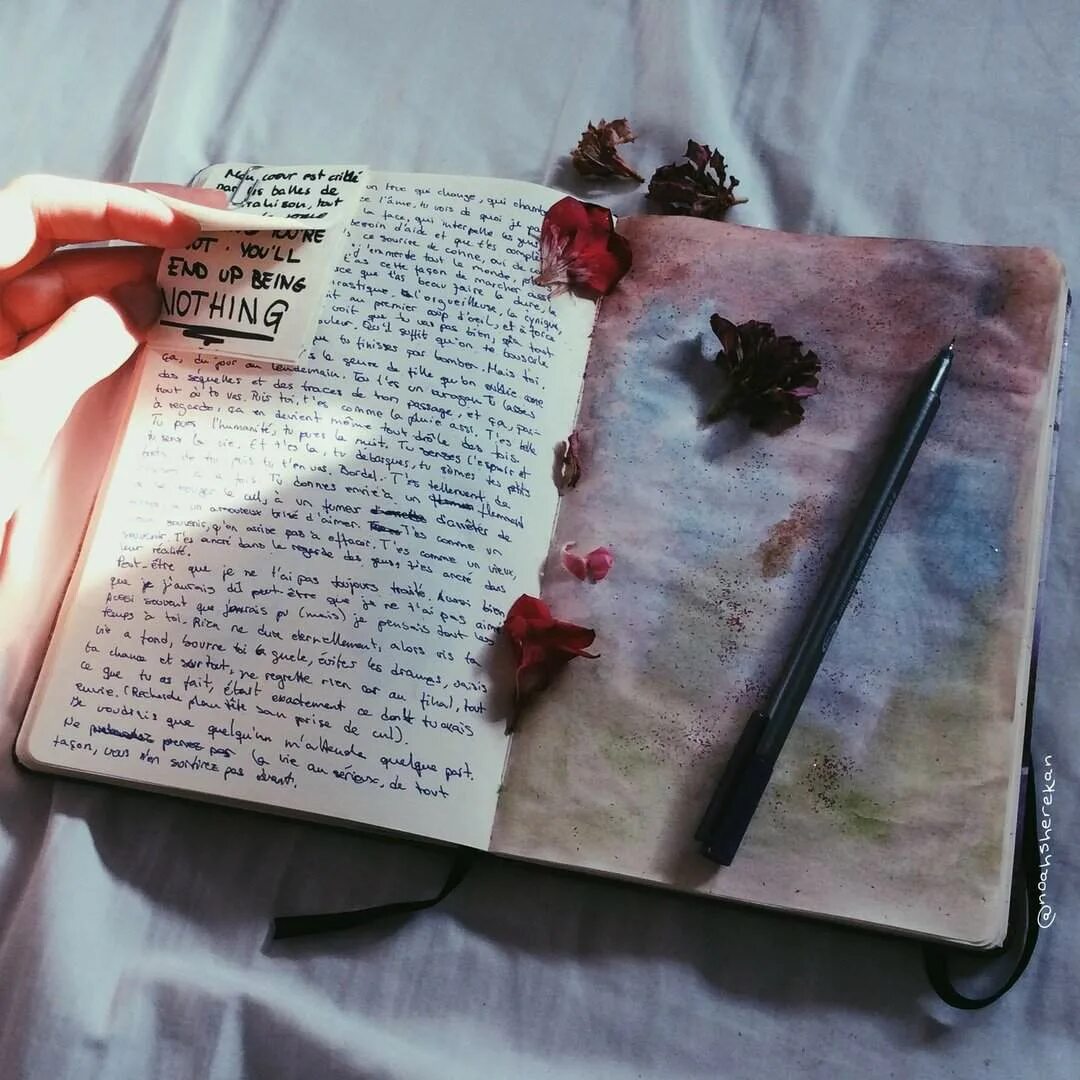 Mon cœur est criblé
par les balles de
trahison, tout
YOU'RE
NOT. YOU'LL
END UP BEING
NOTHING
un truc qui change, qui
l'âme, tu vois de quoi je
la face, qui interpelle les gens
besoin d'aide et que t'es
ce sourire de conne, qui
j'emmerde tout le monde,
cette façon de marcher
que t'as beau faire la dure, la
l'orgueilleuse, la cynique,
au premier coup d'oeil, et à force
voit que tu vas pas bien, que tout
Qu'il suffit qu'on te bouscule
que tu finisses par tomber. Mais toi,
le genre de fille qu'on oublie comme
ça, du jour au lendemain. Tu l'es un Tu laisses
des séquelles et des traces de ton passage, et ça,
tout où tu vas. Puis toi, t'es comme la pluie T'es belle
à regarder, ça en devient même tout drôle des fois.
Tu pues l'humanité, tu pues la nuit. Tu l'espoir et
tu sens la vie. Et t'es là, tu débarques, tu sèmes tes petits
de toi puis tu t'en vas. Bordel. T'es tellement de
à la fois. Tu donnes envie à un flemmard
de bouger le cul, à un fumeur d'arrêter de
à un amoureux brisé d'aimer. T'es comme un
souvenir, qu'on arrive pas à effacer. T'es comme un vieux
souvenir. T'es ancré dans le regard des gens, t'es ancré dans
leur réalité.
Peut-être que je ne t'ai pas toujours traité. Aussi bien
que je j'aurais dû peut-être que je ne t'ai pas aimé
Aussi souvent que j'aurais pu (mais) je pensais tout les
temps à toi. Rien ne dure éternellement, alors vis ta
vie à fond, bourre toi la gueule, évites les drames,
ta chance et surtout, ne regrette rien car au final, tout
ce que tu as fait, était exactement ce dont tu avais
envie. (Recherche plan tête sans prise de cul).
Je voudrais que quelqu'un m'attende quelque part.
Ne prenez pas la vie au sérieux, de tout
façon, vous n'en sortirez pas vivant.
@noahsherekan